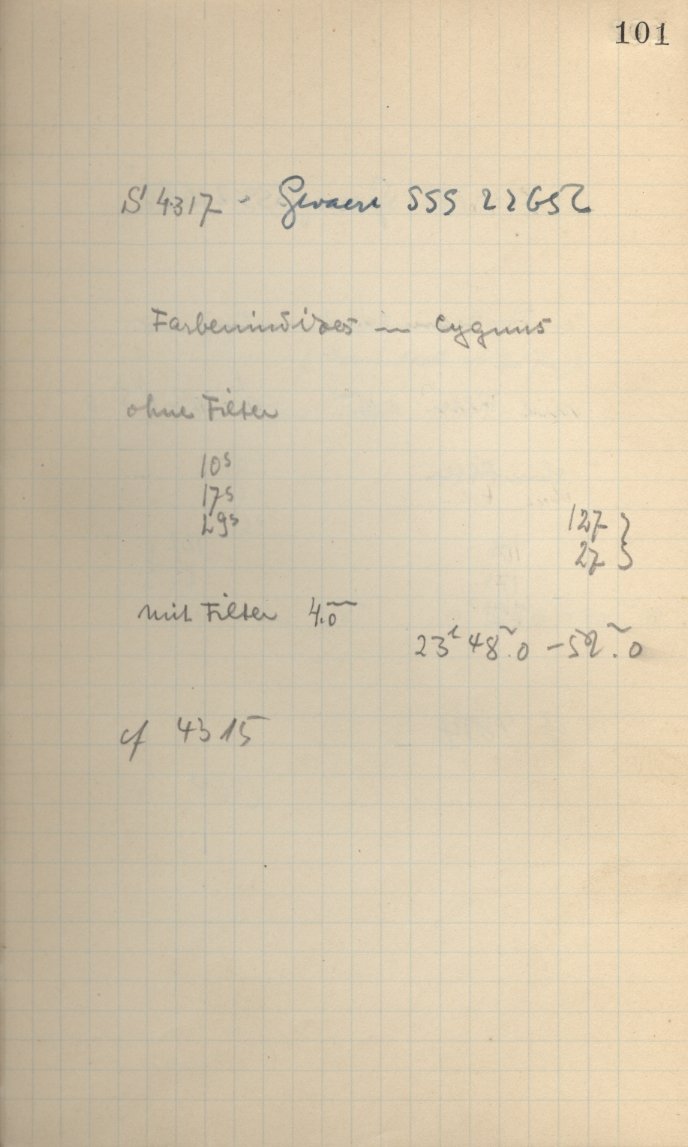 101
S 4317 - Gevaert SSS 22652
Farbenindizes in Cygnus
ohne Filter
10s
17s
29s
127 }
27 }
mit Filter 4.0m
23h 48m.0 - 52m.0
cf 4315